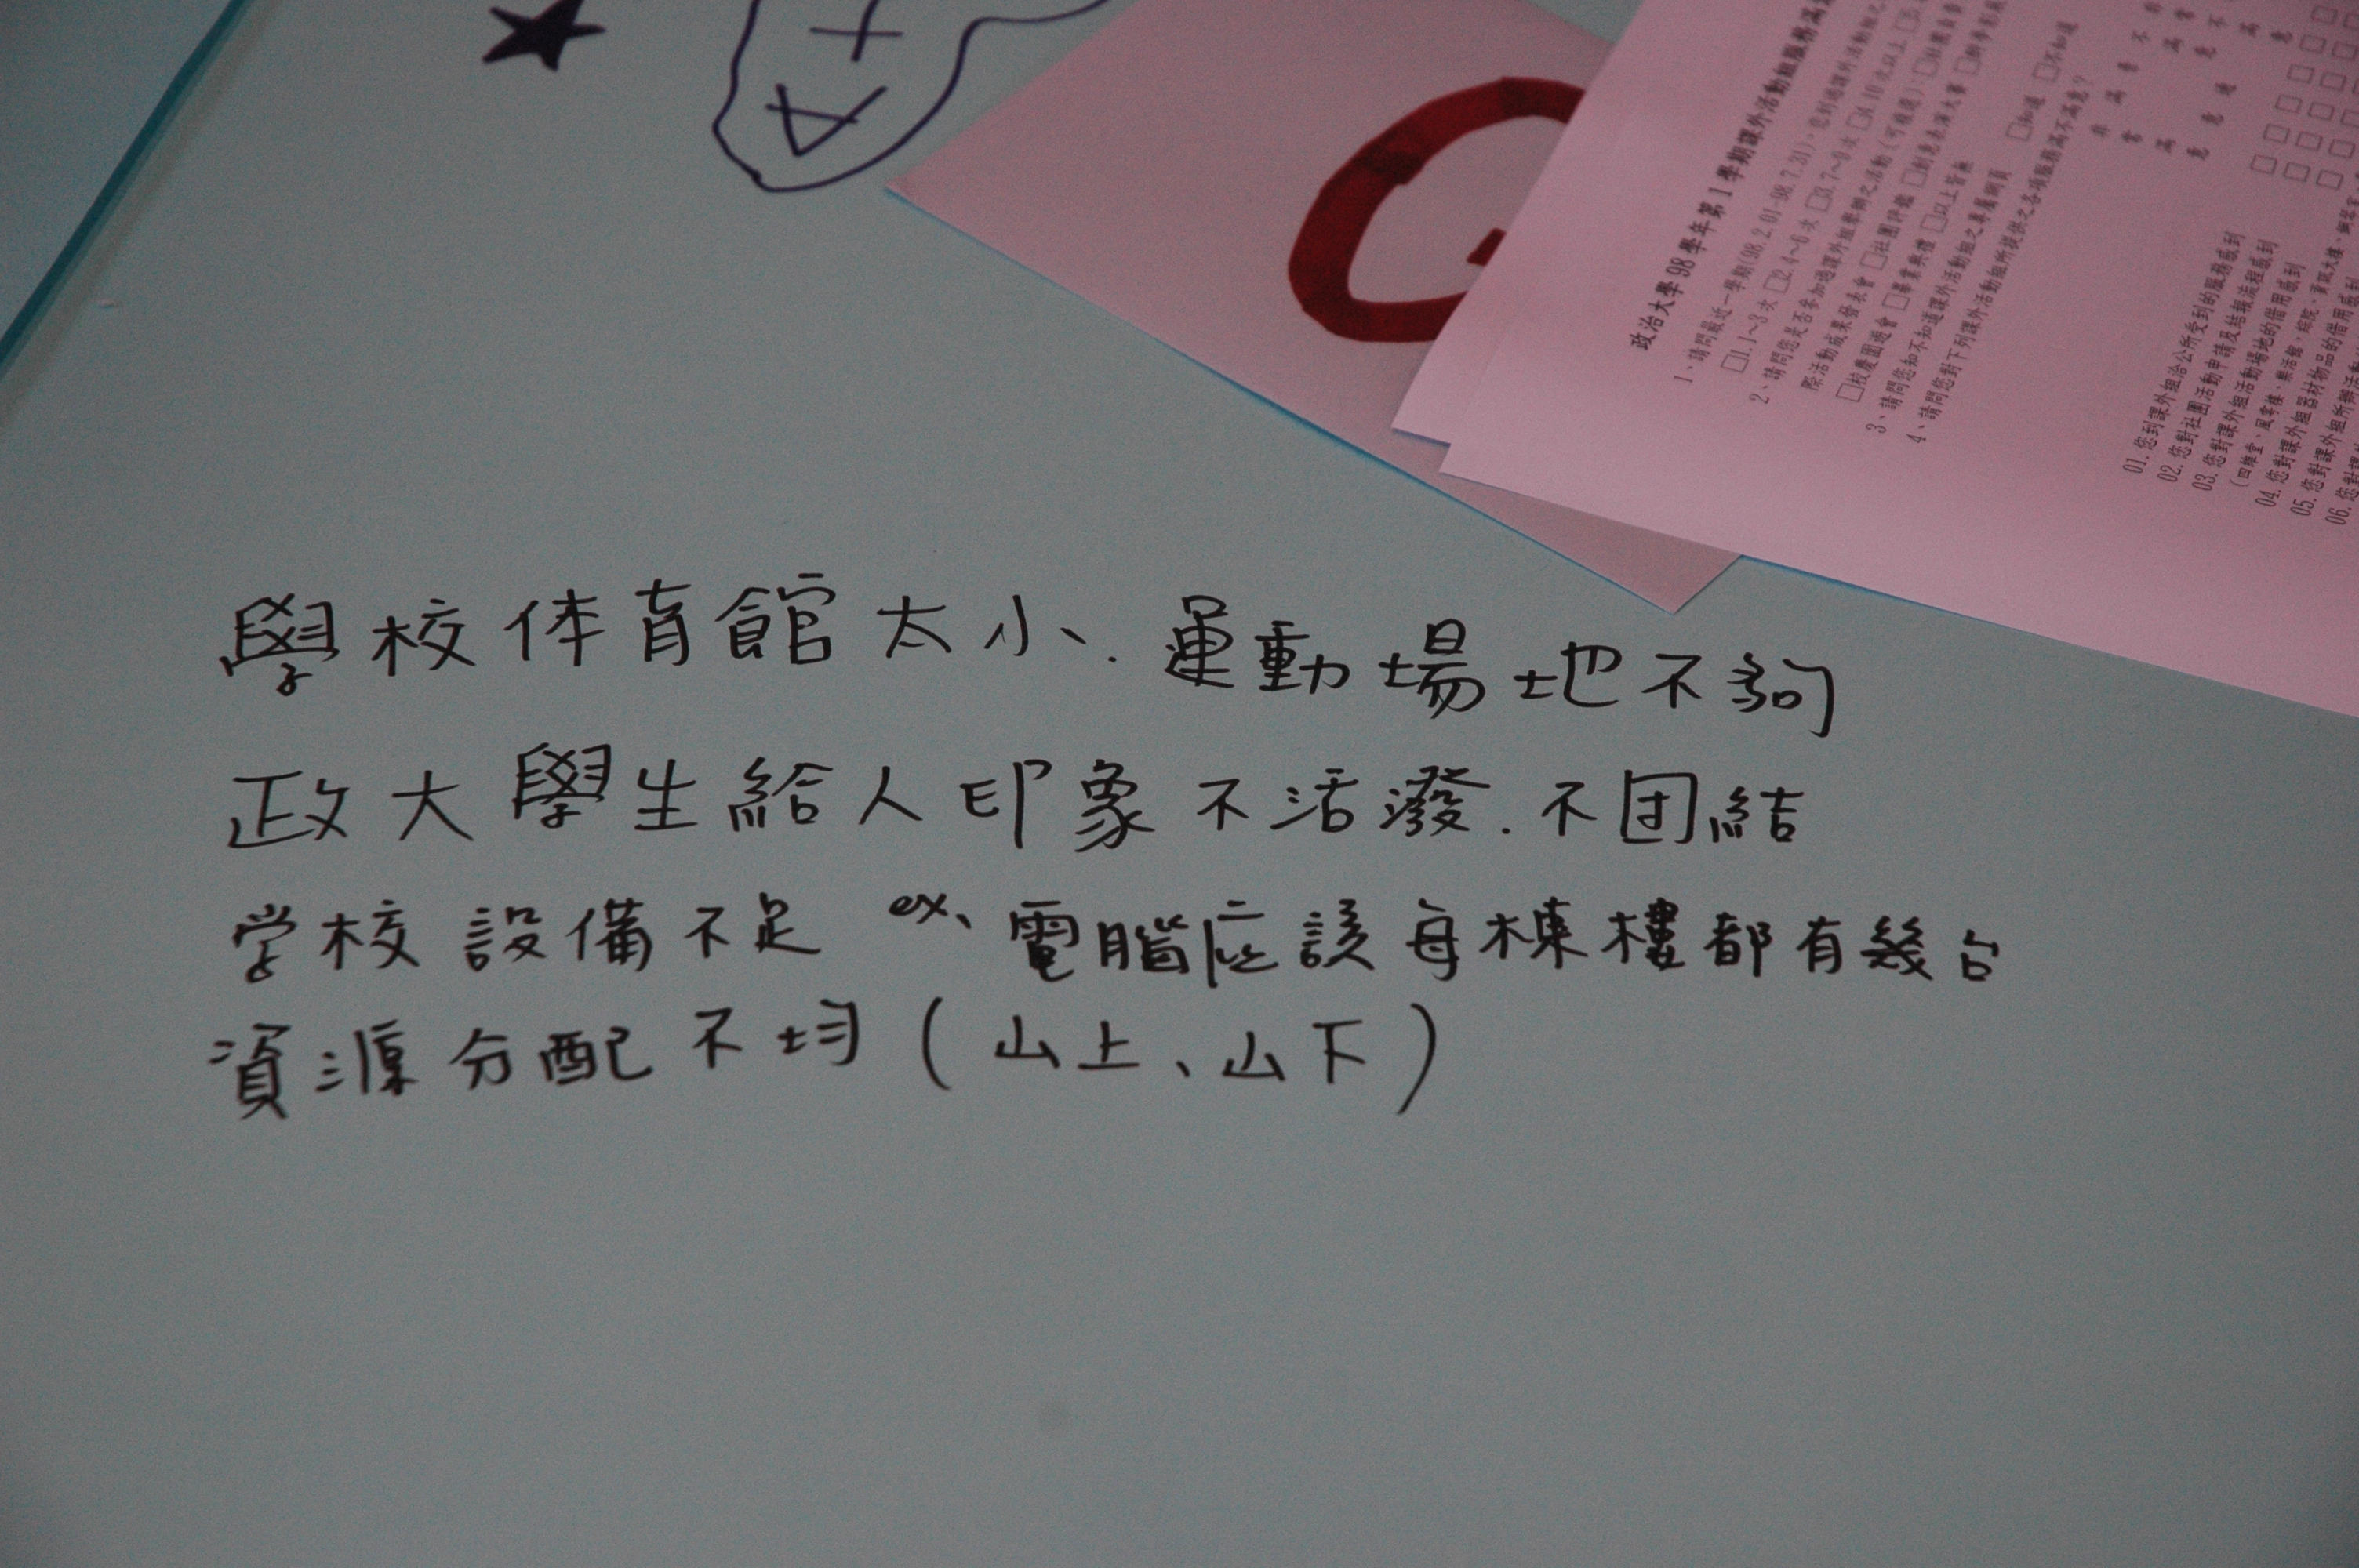 A+
G
政治大學98學年第1學期課外活動組服務滿意
1、請問最近一學期(98.2.01-98.7.31)，您到過課外活動組
□1.1~3次 □2.4~6次 □3.7~9次 □4.10次以上 □5.
2、請問您是否參加過課外組舉辦之活動（可複選）：□社團
際活動成果發表會 □社團評鑑 □創意表演大賽
□校慶園遊會 □畢業典禮 □以上皆無
3、請問您知不知道課外活動組之專屬網頁 □知道 □不知道
4、請問您對下列課外活動組所提供之各項服務滿不滿意？
01.您到課外組洽公所受到的服務感到
02.您對社團活動申請及結報流程感到
03.您對課外組活動場地的借用感到
（四維堂、風雩樓、樂活館、綜院、資訊大樓、
04.您對課外組器材物品的借用感到
05.您對課外組所辦活動
06.您對課
學校体育館太小、運動場地不夠
政大學生給人印象不活潑.不団結
学校設備不足 ex、電腦应該每棟樓都有幾台
資源分配不均（山上、山下）